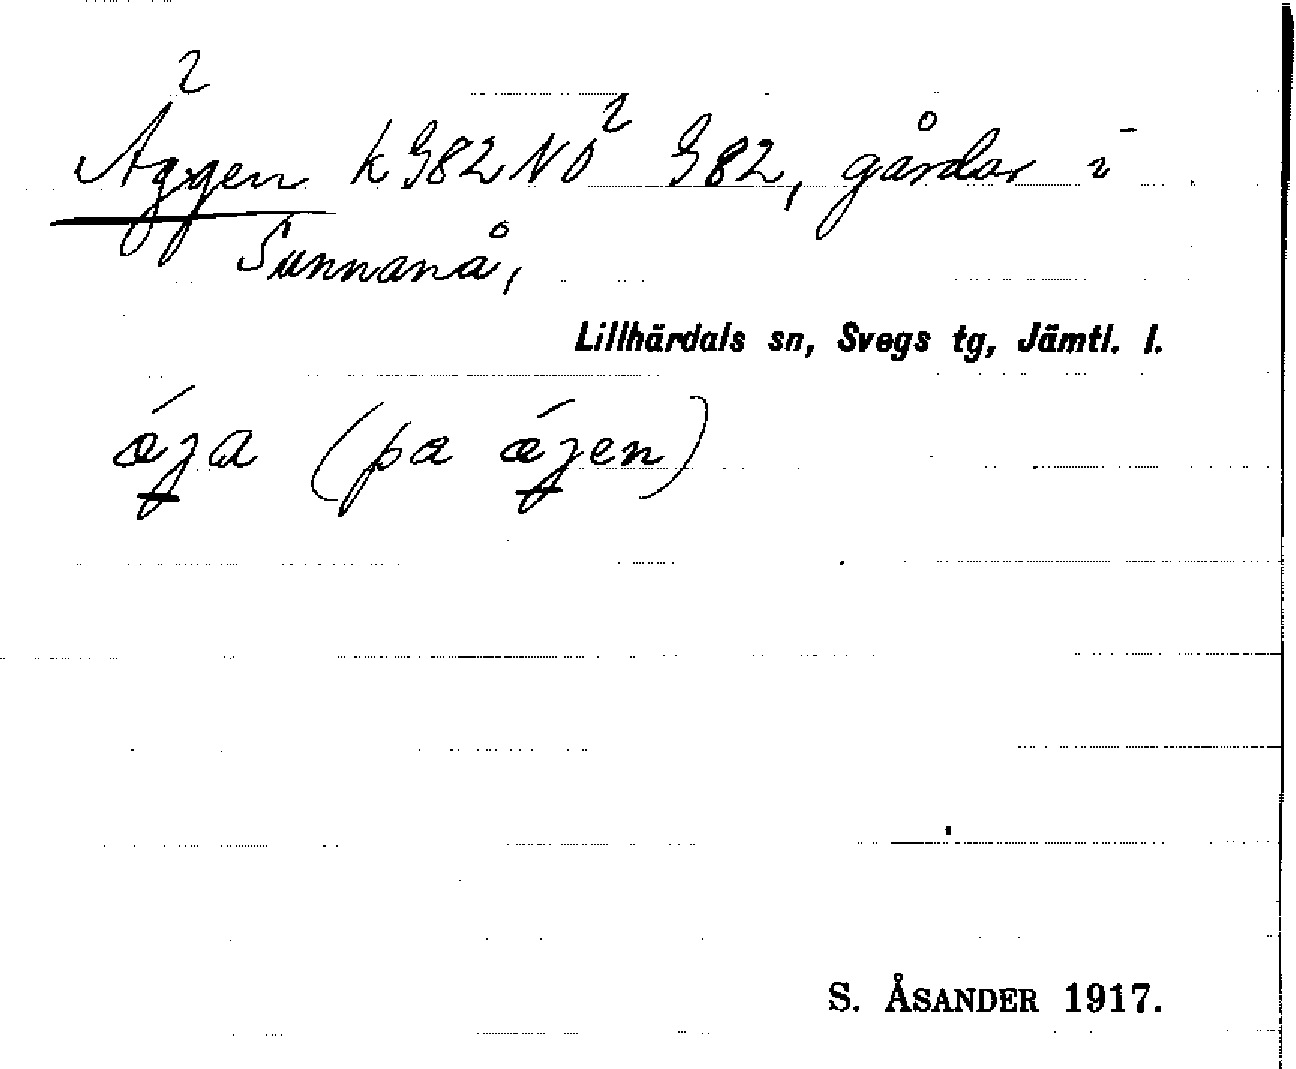 Äggen k G82 NO² G82, gårdar i
Sunnanå,
Lillhärdals sn, Svegs tg, Jämtl. l.
ǽga (pa ǽgen)
S. ÅSANDER 1917.